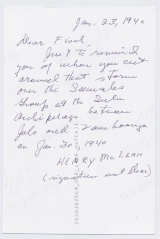 Jan. 23, 1940
Dear Fisal,
Just to remind
you of when you cut
around that storm
over the Samales
Group at the Sulu
Archipelago between
Jolo and Zamboanga
on Jan. 20 1940
HENRY McLEAN
(signature